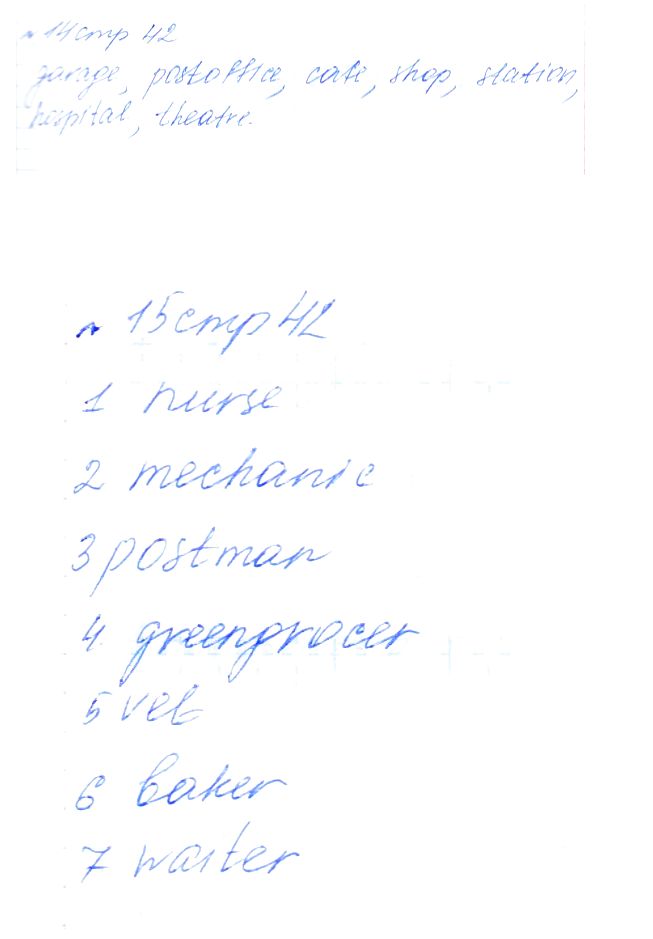 14 стр 42
garage, postoffice, cafe, shop, station,
hospital, theatre.
15 стр 42
1 nurse
2 mechanic
3 postman
4 greengrocer
5 vet
6 baker
7 waiter